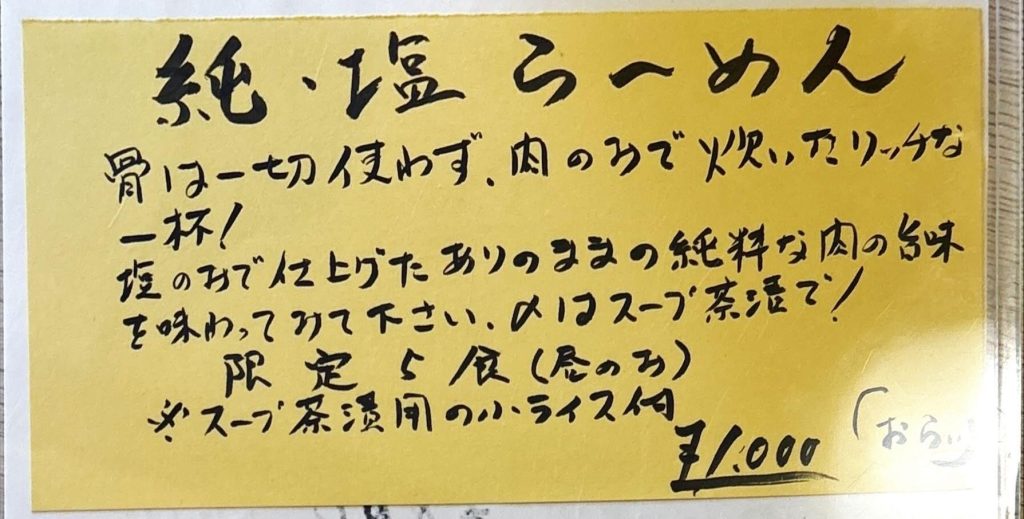 純・塩らーめん
骨は一切使わず、肉のみで炊いたリッチな
一杯!
塩のみで仕上げたありのままの純料な肉の旨味
を味わってみて下さい、〆はスープ茶漬で!
限定5食(昼のみ)
※スープ茶漬用の小ライス付
¥1,000